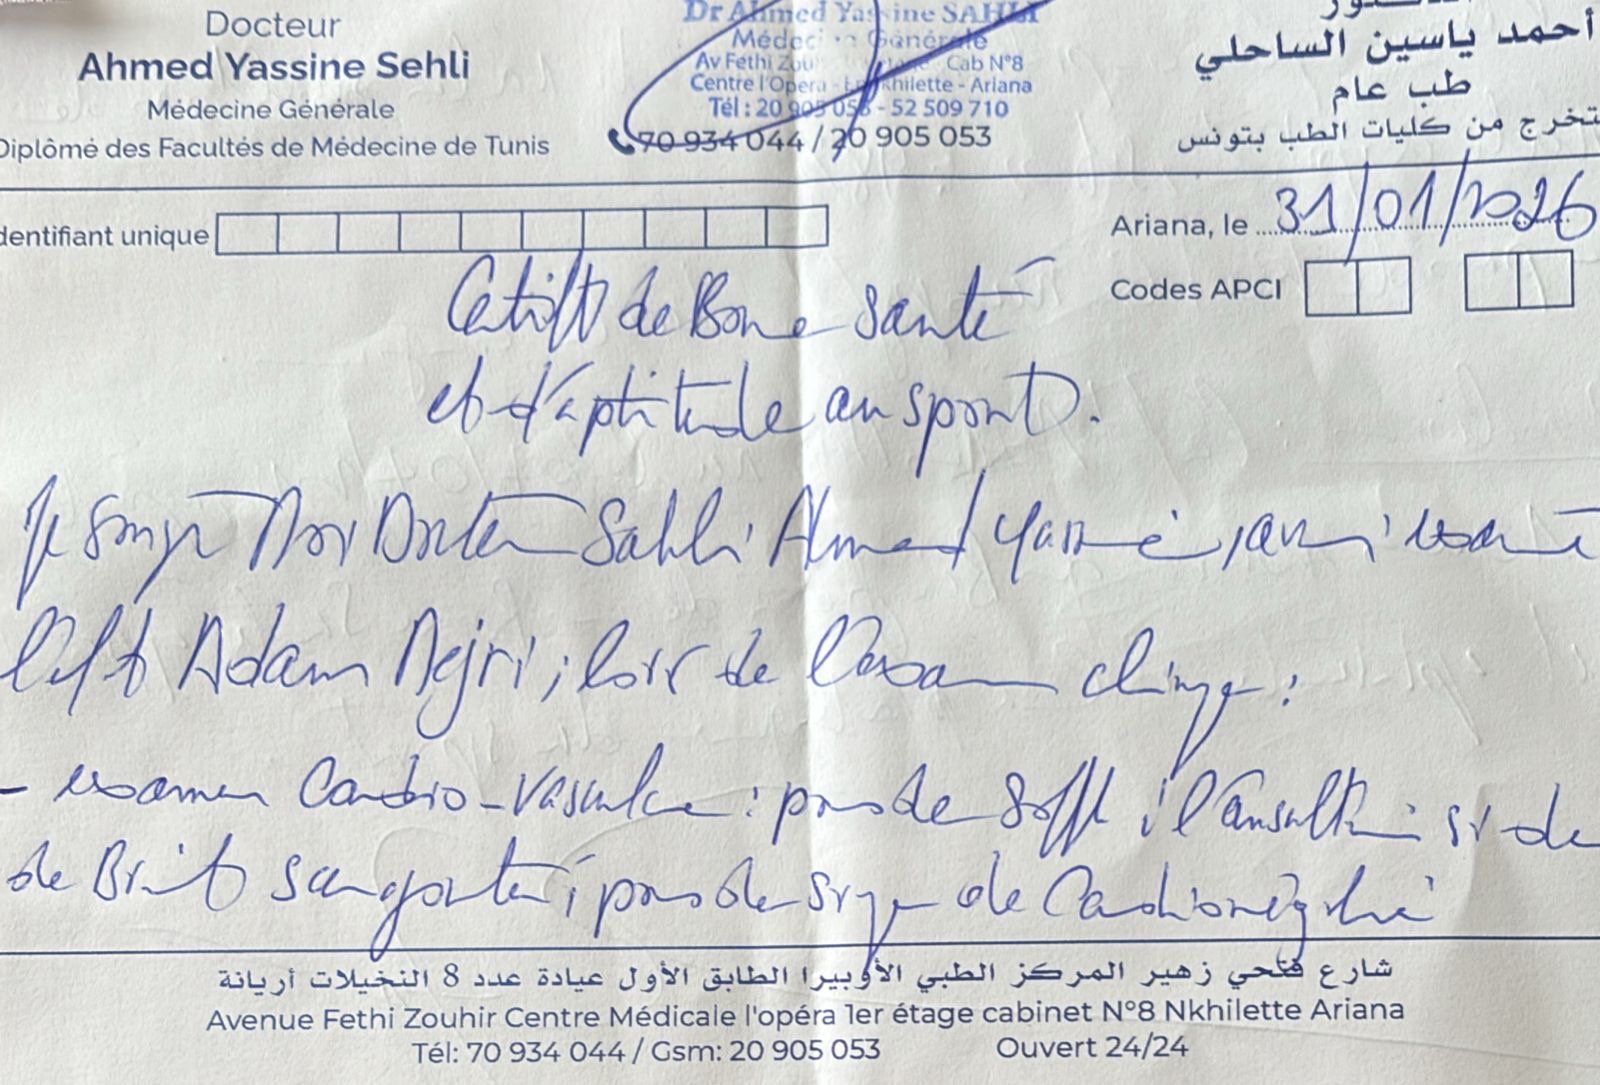 Docteur
Ahmed Yassine Sehli
Médecine Générale
Diplômé des Facultés de Médecine de Tunis
Dr Ahmed Yassine SAHLI
Médecine Générale
Av Fethi Cab N°8
Centre l'Opera - Ennkhilette - Ariana
Tél : 20 905 053 - 52 509 710
70 934 044 / 20 905 053
أحمد ياسين الساحلي
طب عام
متخرج من كليات الطب بتونس
dentifiant unique
Ariana, le 31/01/2026
Codes APCI
Certificat de Bonne santé
et d'aptitude au sport.
Je Moi Docteur Sahli Ahmed Yassine,
Adam Nejri, lors de l'examen clinique :
- examen Cardio-vasculaire : pas de souffle à l'auscultation
de Bruit pas de signe de
شارع فتحي زهير المركز الطبي الأوبيرا الطابق الأول عيادة عدد 8 النخيلات أريانة
Avenue Fethi Zouhir Centre Médicale l'opéra 1er étage cabinet N°8 Nkhilette Ariana
Tél: 70 934 044 / Gsm: 20 905 053 Ouvert 24/24